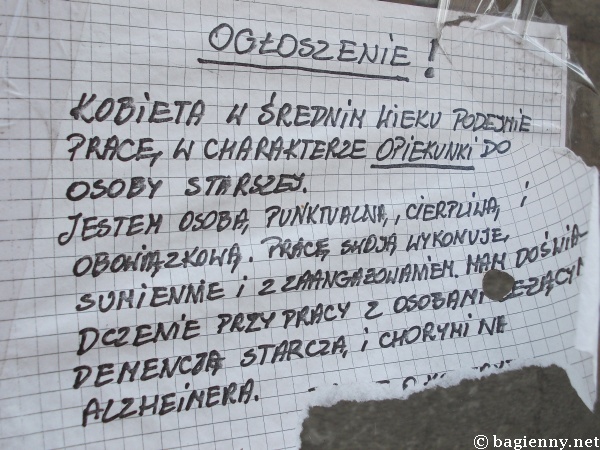 OGŁOSZENIE!
KOBIETA W ŚREDNIM WIEKU PODEJMIE
PRACĘ, W CHARAKTERZE OPIEKUNKI DO
OSOBY STARSZEJ.
JESTEM OSOBĄ, PUNKTUALNĄ, CIERPLIWĄ, I
OBOWIĄZKOWĄ. PRACĘ SWOJĄ WYKONUJĘ,
SUMIENNIE I Z ZAANGAŻOWANIEM. MAM DOŚWIA-
DCZENIE PRZY PRACY Z OSOBAMI
DEMENCJĄ STARCZĄ, I CHORYMI NE
ALZHEIMERA.
© bagienny.net